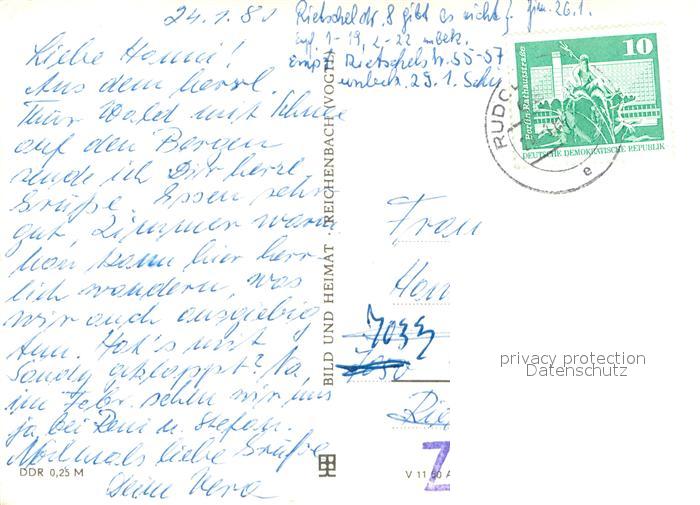 24.1.81
Rietschelstr. 8 gibt es nicht 26.1.
1-19, 2-22 unbek.
Rietschelstr. 55-57
unbek. 29.1.
Liebe Hanni!
Aus dem herrl.
Thür Wald mit Schnee
auf den Bergen
sende ich Dir herzl.
Grüße. Essen sehr
gut, Zimmer warm
man kann hier herr-
lich wandern, was
wir auch ausgiebig
tun. Hat's mit
Sandy geklappt? Na,
im Febr. sehen wir uns
ja bei Reni u. Stefan.
Nochmals liebe Grüße
Deine Vera
DDR 0,25 M
BILD UND HEIMAT REICHENBACH (VOGTL)
V 11 50 A
10
Berlin, Rathausstraße
DEUTSCHE DEMOKRATISCHE REPUBLIK
RUDOL
e
Frau
Han
7033
7050
Rie
Z
privacy protection
Datenschutz